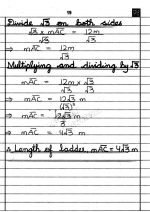 Divide √3 on both sides
√3 × mAC / √3 = 12m / √3
⇒ mAC = 12m / √3
Multiplying and dividing by √3
mAC = 12m / √3 × √3 / √3
⇒ mAC = 12√3 m / (√3)²
⇒ mAC = 12√3 m / 3
⇒ mAC = 4√3 m
∴ Length of ladder, mAC = 4√3 m